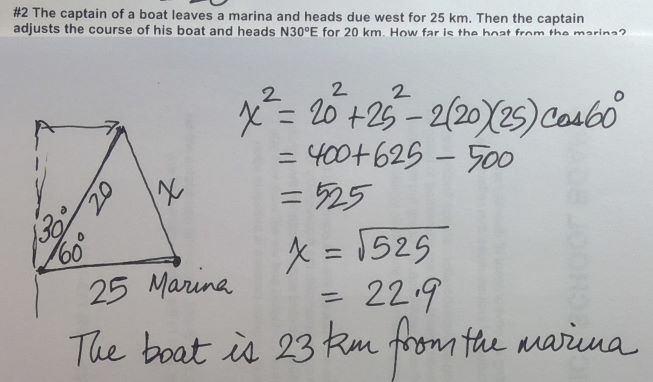 #2 The captain of a boat leaves a marina and heads due west for 25 km. Then the captain
adjusts the course of his boat and heads N30°E for 20 km. How far is the boat from the marina?
x² = 20² + 25² - 2(20)(25) Cos60°
= 400+625 - 500
= 525
x = √525
= 22.9
30°
20
x
60°
25 Marina
The boat is 23 km from the marina